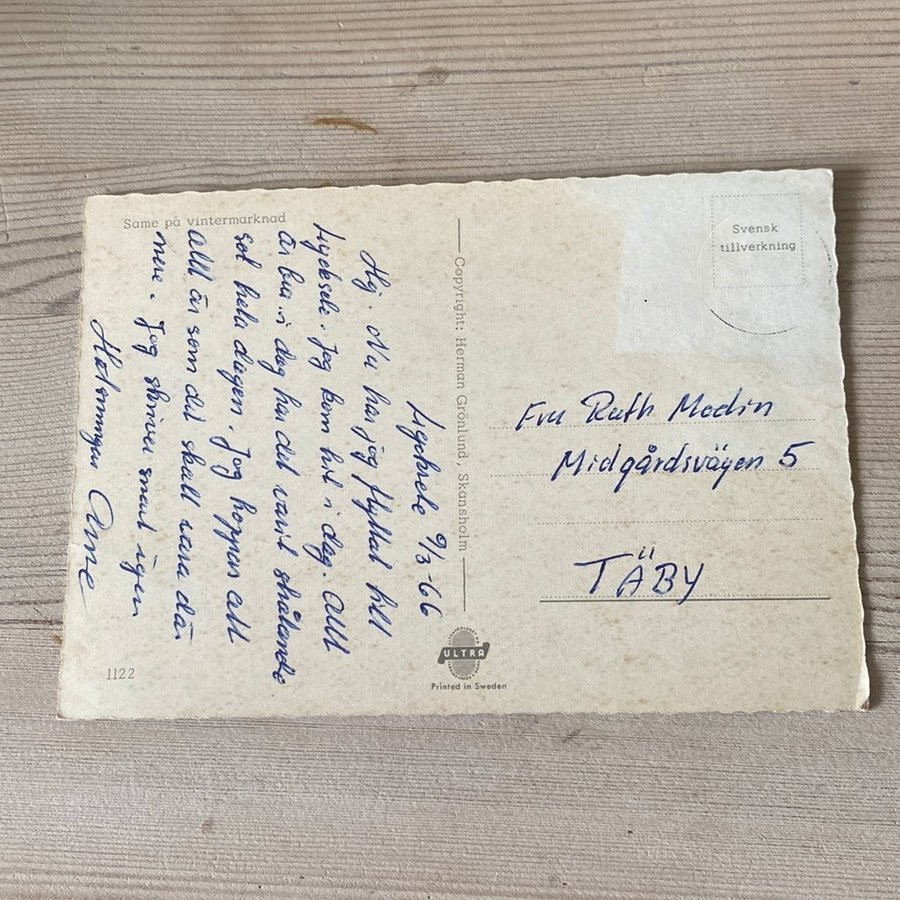 Same på vintermarknad
Lycksele 9/3-66
Hej. Nu har jag flyttat till
Lycksele. Jag kom hit i dag. Allt
är bra. i dag har det varit strålande
sol hela dagen. Jag hoppas att
allt är som det skall vara där
nere. Jag skriver snart igen
Hälsningar Arne
1122
Copyright: Herman Grönlund, Skansholm
ULTRA
Printed in Sweden
Svensk
tillverkning
Fru Ruth Medin
Midgårdsvägen 5
TÄBY